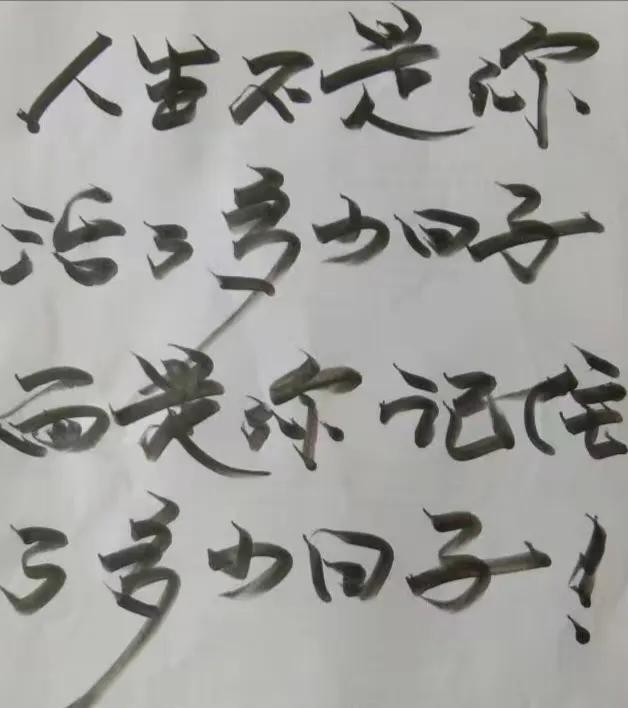 人生不是你
活了多少日子
而是你记住
了多少日子！